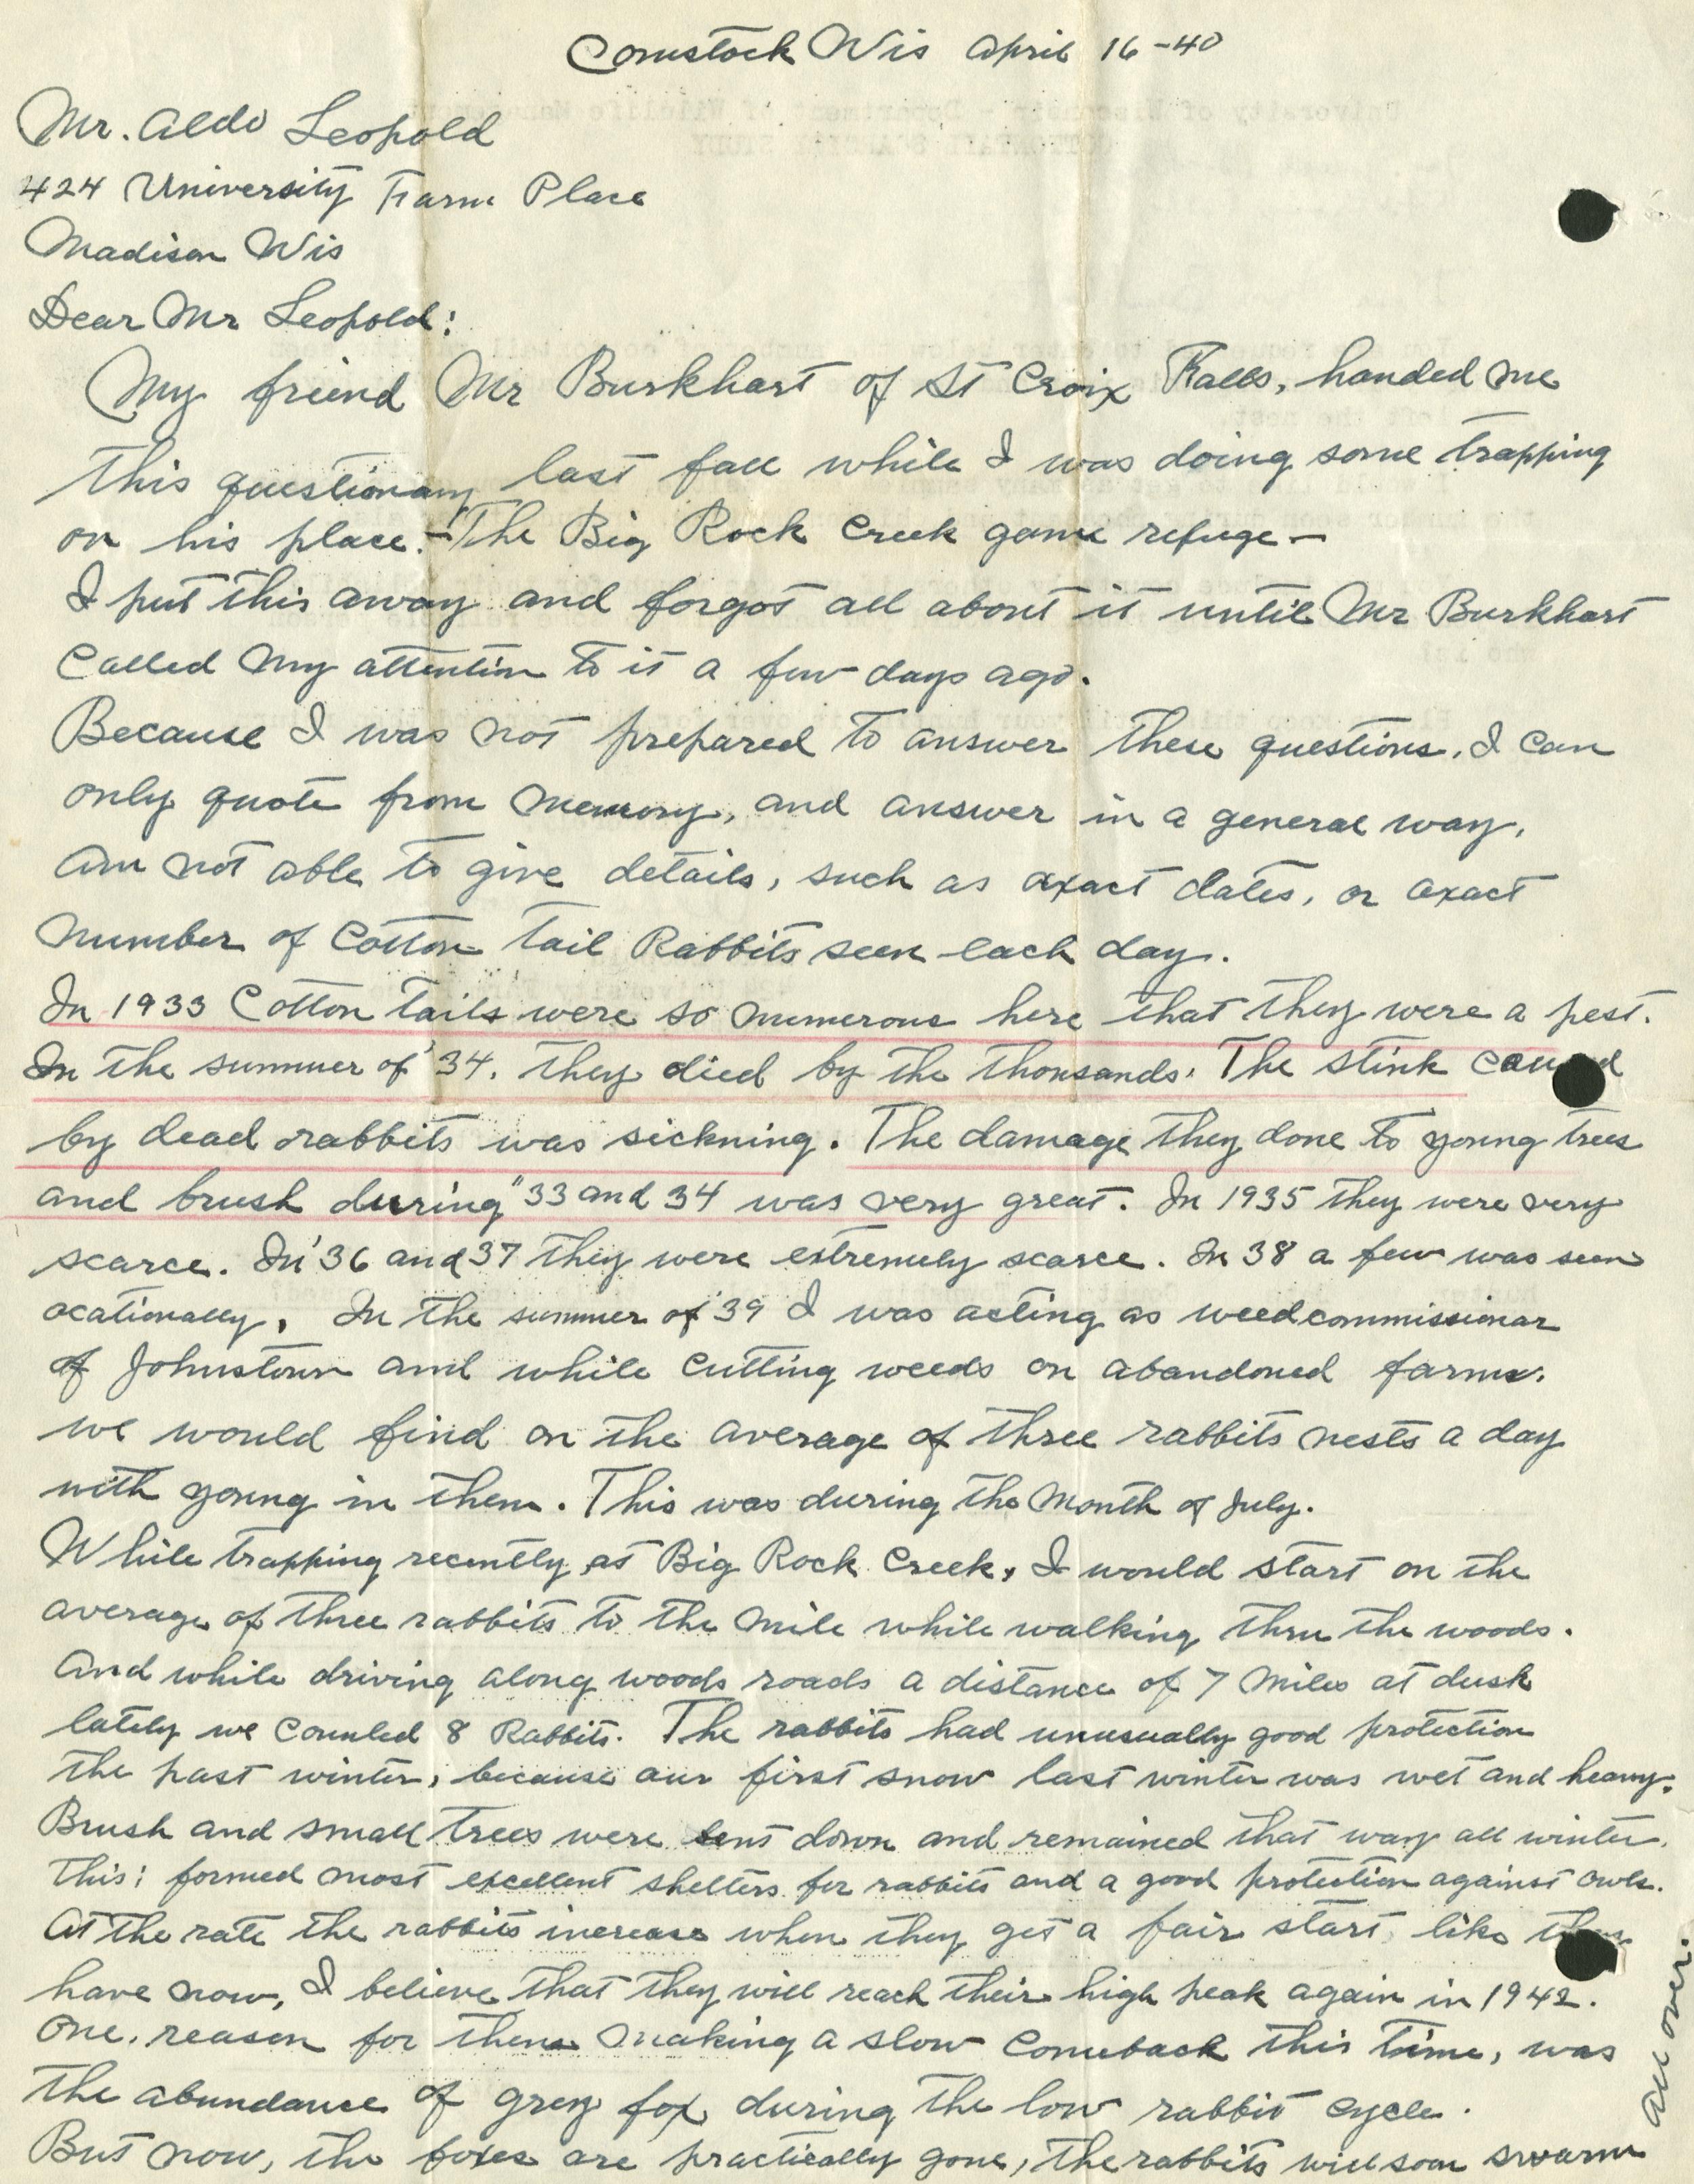 Comstock Wis April 16-40
Mr. Aldo Leopold
424 University Farm Place
Madison Wis
Dear Mr Leopold:
My friend Mr Burkhart of St Croix Falls, handed me
this questionary last fall while I was doing some trapping
on his place. - The Big Rock Creek game refuge -
I put this away and forgot all about it until Mr Burkhart
called my attention to it a few days ago.
Because I was not prepared to answer these questions. I can
only quote from memory, and answer in a general way.
am not able to give details, such as exact dates, or exact
number of Cotton tail Rabbits seen each day.
In 1933 Cotton tails were so numerous here that they were a pest.
In the summer of '34. they died by the thousands. The stink caused
by dead rabbits was sickning. The damage they done to young trees
and brush during "33 and 34 was very great. In 1935 they were very
scarce. In '36 and 37 they were extremely scarce. In 38 a few was seen
ocationally. In the summer of '39 I was acting as weedcommissionar
of Johnstown and while cutting weeds on abandoned farms.
we would find on the average of three rabbits nests a day
with young in them. This was during the month of July.
While trapping recently at Big Rock Creek, I would start on the
average of three rabbits to the mile while walking thru the woods.
And while driving along woods roads a distance of 7 miles at dusk
lately we counled 8 Rabbits. The rabbits had unusually good protection
the past winter, because our first snow last winter was wet and heavy.
Brush and small trees were bent down and remained that way all winter.
This: formed most excellent shelters for rabbits and a good protection against owls.
At the rate the rabbits increase when they get a fair start, like they
have now, I believe that they will reach their high peak again in 1942.
One. reason for them making a slow comeback this time, was
the abundance of grey fox during the low rabbit cycle.
But now, the foxes are practically gone, the rabbits will soon swarm
all over.